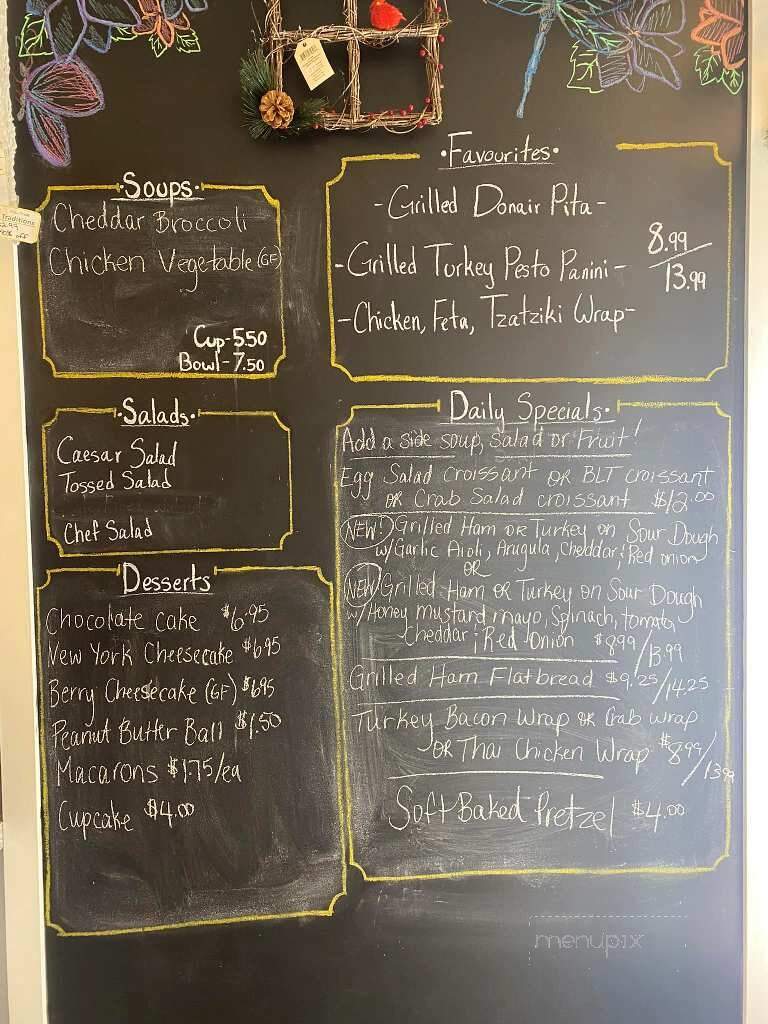 Soups
Cheddar Broccoli
Chicken Vegetable (GF)
Cup-5.50
Bowl-7.50
Salads
Caesar Salad
Tossed Salad
Chef Salad
Desserts
Chocolate cake $6.95
New York Cheesecake $6.95
Berry Cheesecake (GF) $6.95
Peanut Butter Ball $1.50
Macarons $1.75/ea
Cupcake $4.00
Favourites
-Grilled Donair Pita-
-Grilled Turkey Pesto Panini-
8.99/13.99
-Chicken, Feta, Tzatziki Wrap-
Daily Specials
Add a side soup, salad or Fruit!
Egg Salad croissant OR BLT croissant
OR Crab Salad croissant $12.00
NEW! Grilled Ham OR Turkey on Sour Dough
w/Garlic Aioli, Arugula, cheddar, Red onion
OR
NEW Grilled Ham OR Turkey on Sour Dough
w/Honey mustard mayo, Spinach, tomato,
Cheddar, Red Onion $8.99/13.99
Grilled Ham Flatbread $9.25/14.25
Turkey Bacon Wrap OR Crab wrap
OR Thai Chicken Wrap $8.99/13.99
Soft Baked Pretzel $4.00
menupix